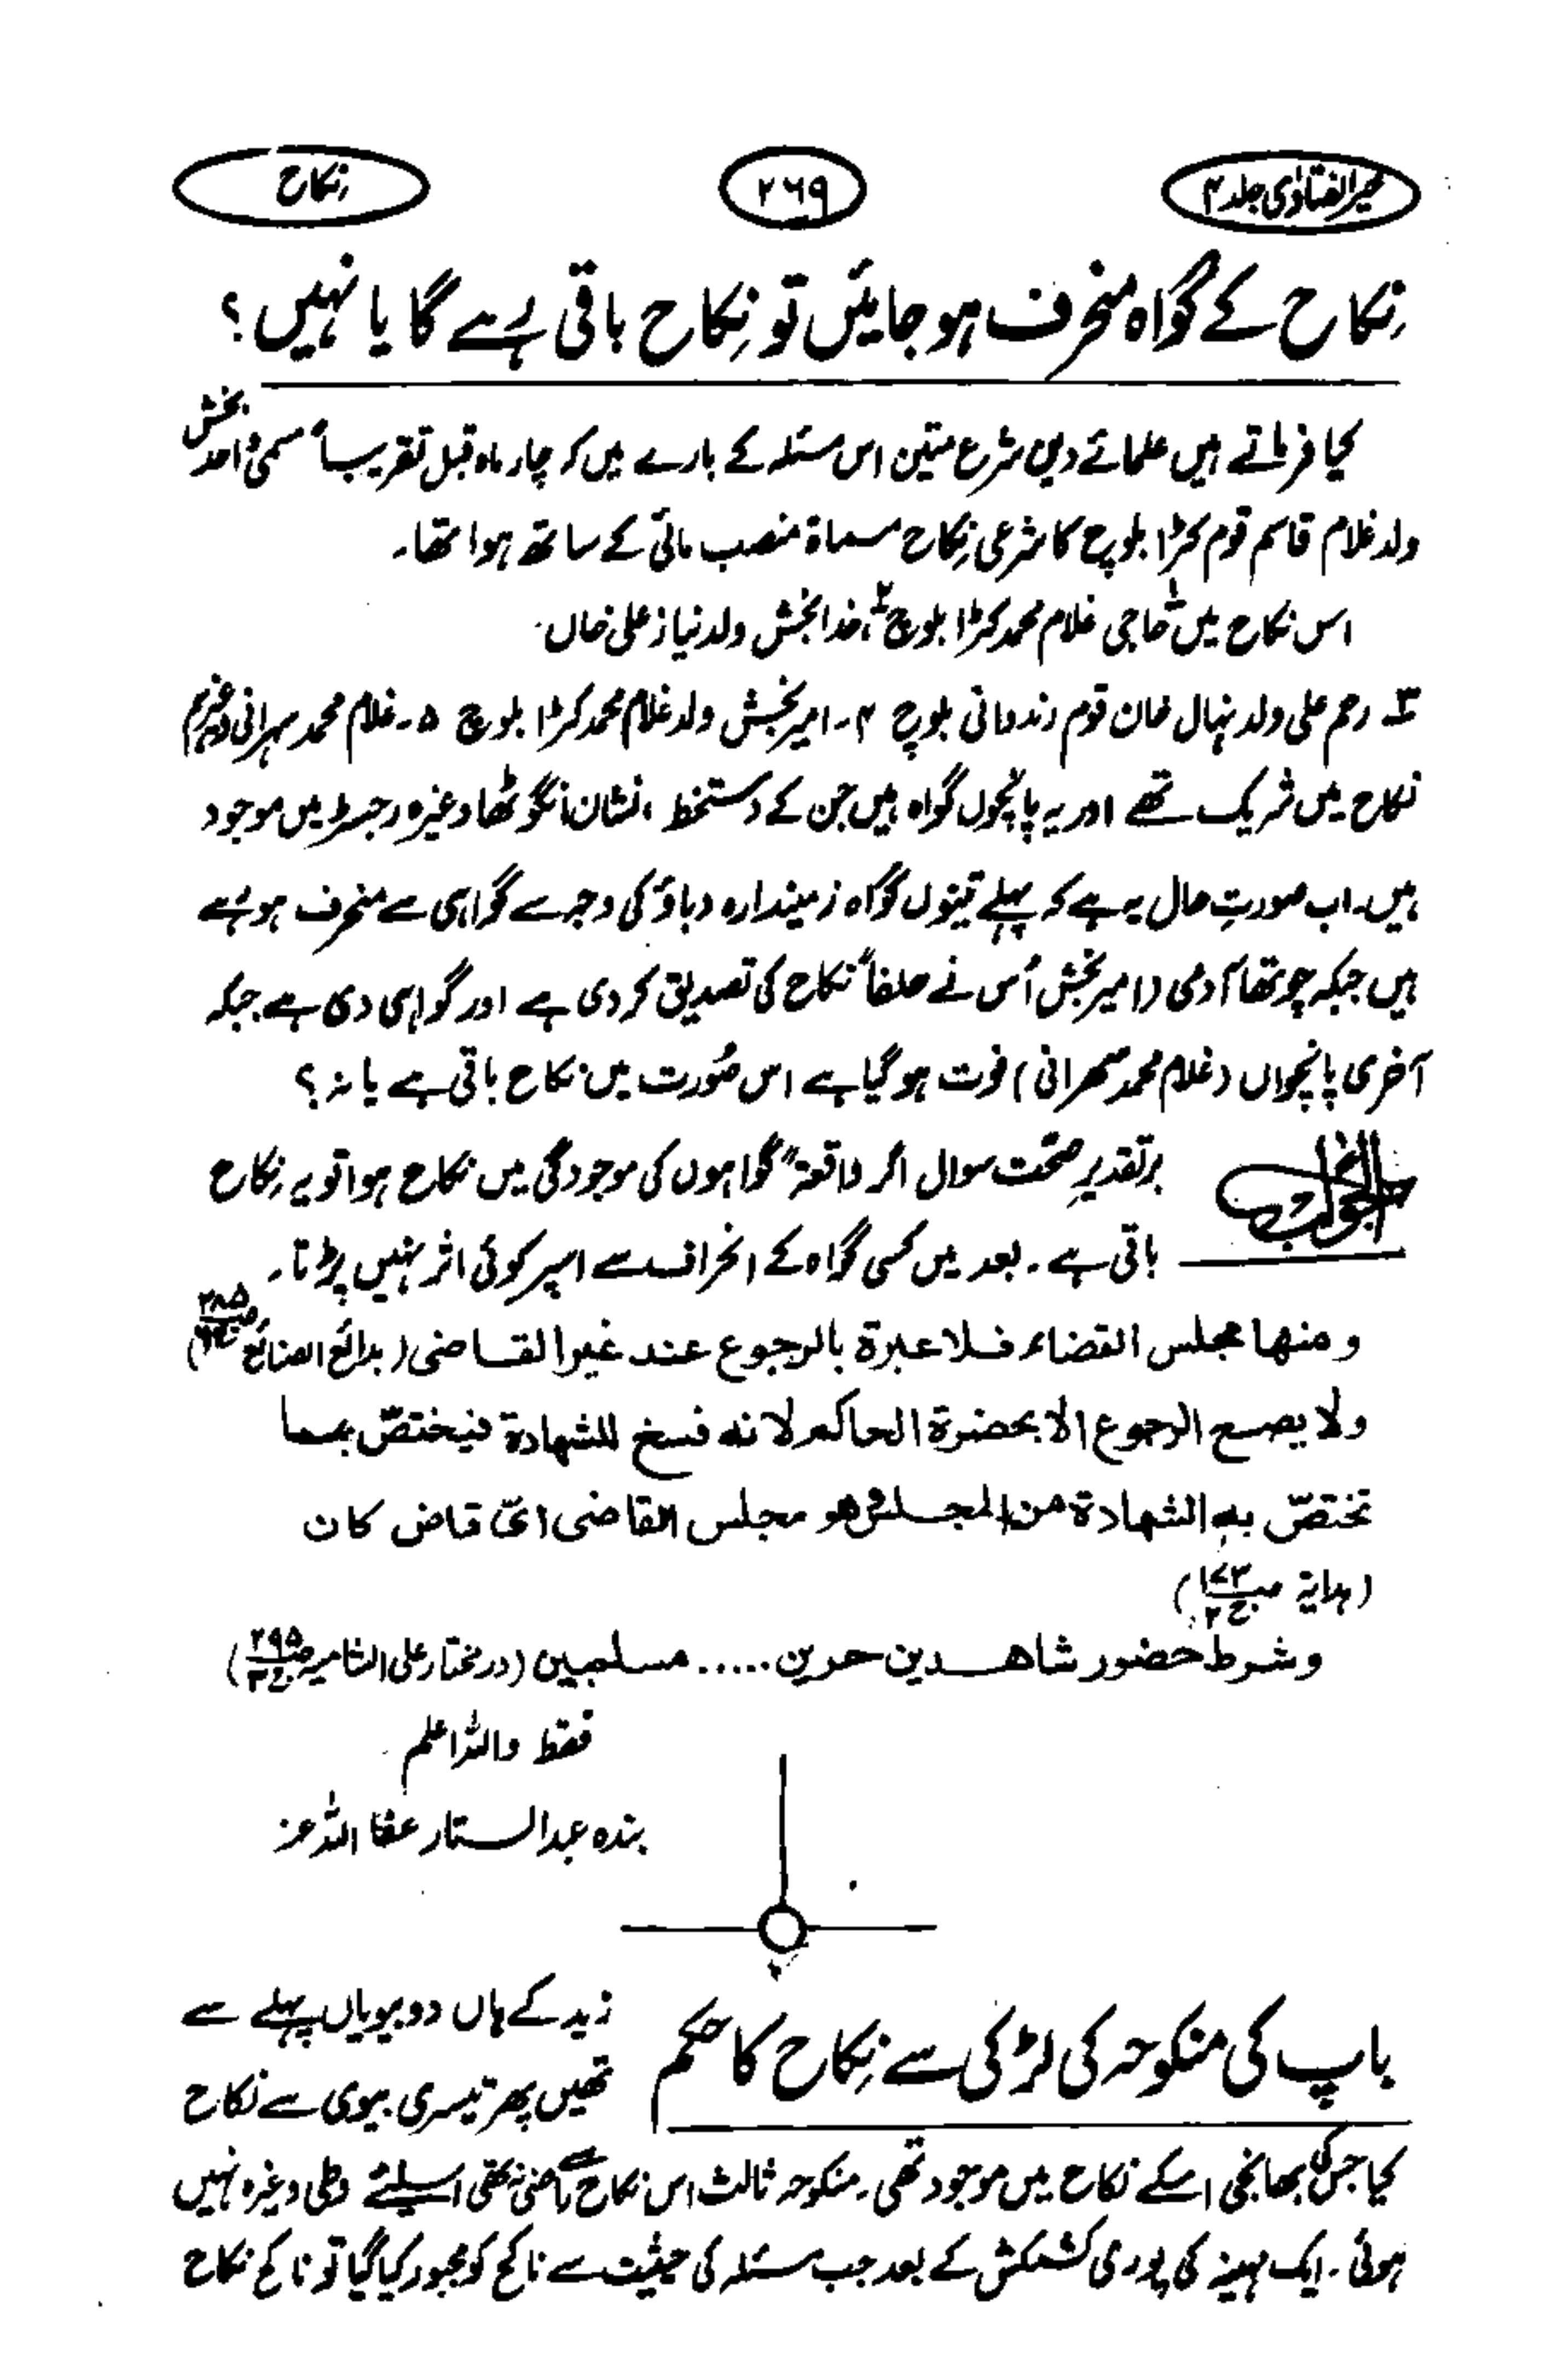 خیر الفتاوٰی جلد ۴
۲۶۹
نکاح
نکاح کے گواہ منحرف ہو جائیں تو نِکاح باقی رہے گا یا نہیں ؟
کیا فرماتے ہیں علمائے دین شرع متین اس مسئلہ کے بارے میں کہ چار ماہ قبل تقریباً مسمّٰی احمد بخش
ولد غلام قاسم قوم کرڑا بلوچ کا شرعی نِکاح مسماۃ منصب مائی کے ساتھ ہوا تھا۔
اس نکاح میں ۱ حاجی غلام محمد کرڑا بلوچ ۲، خدا بخش ولد نیاز علی خاں
۳ رحم علی ولد نہال خان قوم رندمانی بلوچ ۴۔ امیر بخش ولد غلام محمد کرڑا بلوچ ۵۔ غلام محمد مہرانی وغیرہم
نکاح میں شریک تھے اور یہ پانچوں گواہ ہیں جن کے دستخط ، نشان انگوٹھا وغیرہ رجسٹر میں موجود
ہیں۔ اب صورتِ حال یہ ہے کہ پہلے تینوں گواہ زمیندارہ دباؤ کی وجہ سے گواہی سے منحرف ہو رہے
ہیں جبکہ چوتھا آدمی (امیر بخش اُس نے حلفاً نکاح کی تصدیق کر دی ہے اور گواہی دی ہے جبکہ
آخری پانچواں (غلام محمد مہرانی) فوت ہو گیا ہے اس صُورت میں نکاح باقی ہے یا نہ ؟
الجواب
برتقدیرِ صحّت سوال اگر واقعۃً گواہوں کی موجودگی میں نکاح ہوا تو یہ نِکاح
باقی ہے ۔ بعد میں کسی گواہ کے انحراف سے اسپر کوئی اثر نہیں پڑتا۔
ومنها مجلس القضاء فلا عبرة بالرجوع عند غير القاضى (بدائع الصنائع ص۲۸۵ ج۶)
ولا يصح الرجوع الا بحضرة الحاكم لانه فسخ للشهادة فيختصّ بما
تختصّ به الشهادة من المجلس وهو مجلس القاضى اىّ قاض كان
(ہدایۃ ص۱۷۳ ج۳)
وشرط حضور شاهدين حرين ..... مسلمين (درمختار علی الشامیہ ص۲۹۵ ج۲)
فقط واللہ اعلم
بندہ عبدالستار عفا اللہ عنہ
باپ کی منکوحہ کی لڑکی سے نِکاح کا حکم
زید کے ہاں دو بیویاں پہلے سے
تھیں پھر تیسری بیوی سے نکاح
کیا جس کی بھانجی اسکے نکاح میں موجود تھی۔ منکوحہ ثالث اس نکاح سے راضی نہ تھی اسلئے وطی وغیرہ نہیں
ہوئی۔ ایک مہینہ کی پوری کشمکش کے بعد جب مسئلہ کی حیثیت سے ناکح کو مجبور کیا گیا تو ناکح نکاح